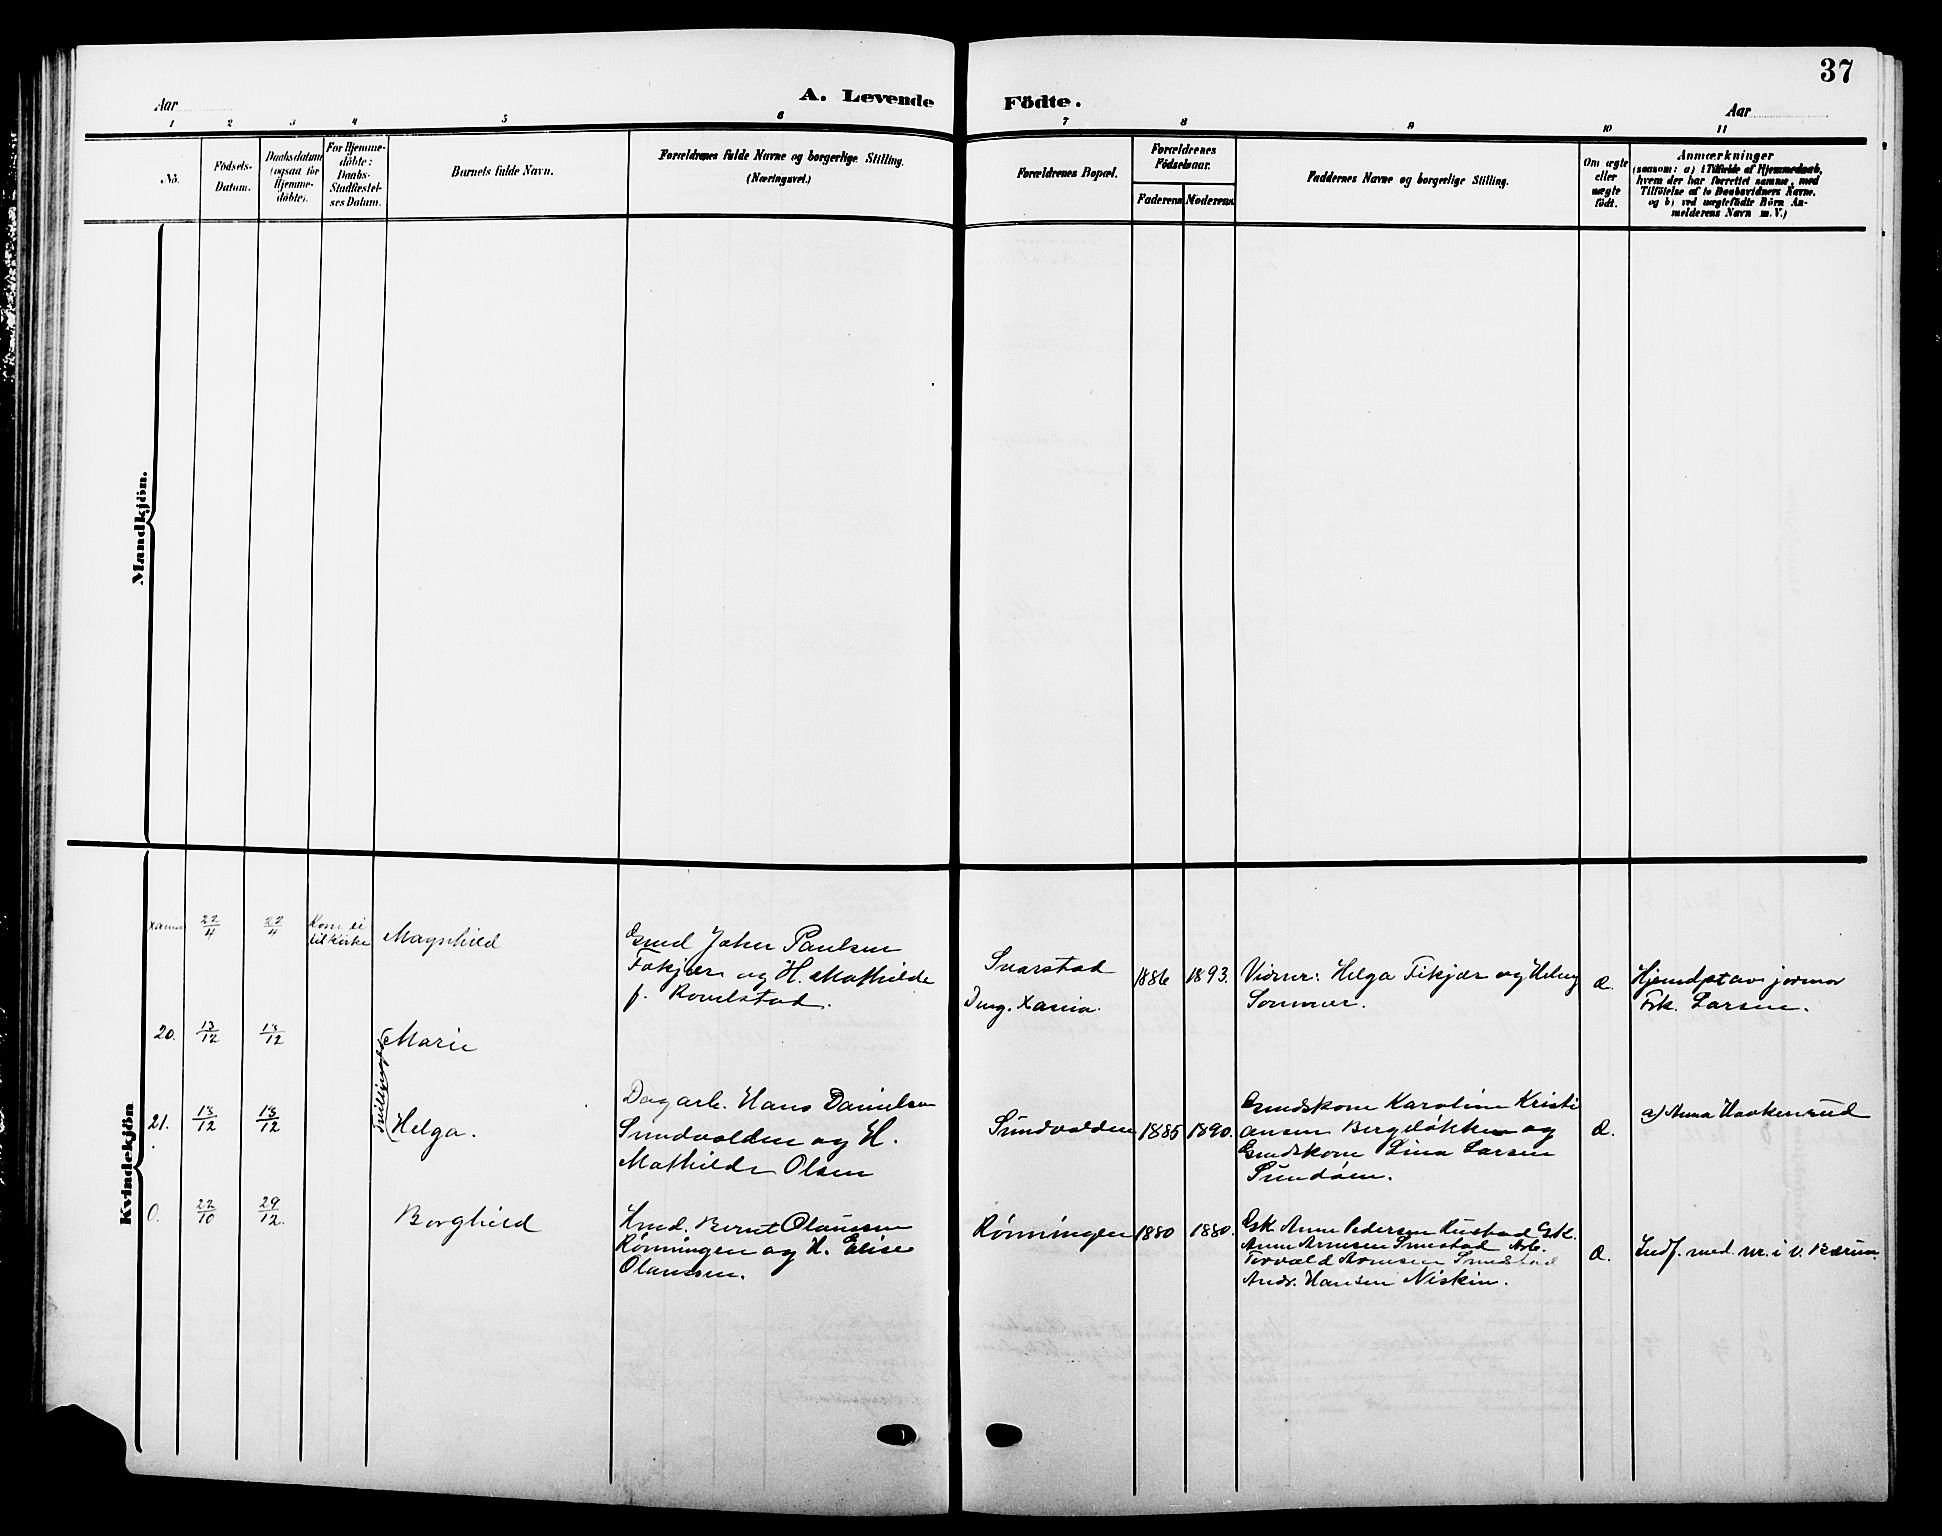 37
Aar
A. Levende
Födte.
Aar
1
2
3
4
5
6
7
8
9
10
11
No.
Födsels-
Datum.
Daabsdatum
(ogsaa for
Hjemme-
döbte).
For Hjemme-
döbte:
Daabs-
Stadfæstel-
ses Datum.
Barnets fulde Navn.
Forældrenes fulde Navne og borgerlige Stilling.
(Næringsvei.)
Forældrenes Bopæl.
Forældrenes
Födselsaar.
Faderens
Moderens.
Faddernes Navne og borgerlige Stilling.
Om ægte
eller
uægte
födt.
Anmærkninger
(saasom: a) i Tilfælde af Hjemmedaab,
hvem der har forrettet samme, med
Tilföielse af to Daabsvidners Navne.
og b) ved uægtefödte Börn An-
melderens Navn m. V.)
Mandkjön.
Kvindekjön
Xania
22/4
22/4
Kom ei
til kirke
Magnhild
Gmd John Paulsen
og H. Mathilde
f.
Svarstad
Xania.
1886
1893.
Vidner: Helga Fikjær og
Sommer.
Æ.
jormor
Frk. Larsen.
20.
13/12
13/12
Marie
Tvillingpar
21.
13/12
13/12
Helga.
Dagarb. Hans Danielsen
Sundvolden og H.
Mathilde Olsen
Sundvolden
1885
1890.
Gmdskone Karoline Kristi
ansen Bergeløkken og
Gmdskone Lina Larsen
Sundøen.
Æ.
a) Anna Haakenrud
0.
22/10
29/12.
Borghild
Bernt Olaussen
Rønningen og H. Elise
Olaussen.
Rønningen
1880
1880.
Gsk. Anne Pedersen Rustad Gsk.
Anne Arnesen Smestad Arb.
Torvald Arnesen Smestad
Andr. Hansen Niskin.
Æ.
Indf. med nr. i V. Bærum